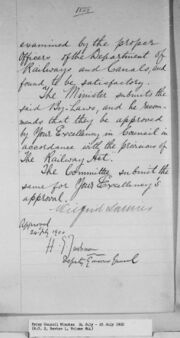 examined by the proper
Officers of the Department of
Railways and Canals, and
found to be satisfactory.
The Minister submits the
said By-Laws, and he recom-
mends that they be approved
by Your Excellency in Council in
accordance with the provisions of
The Railway Act.
The Committee submit the
same for Your Excellency's
approval.
Wilfrid Laurier
Approved
July 1900
H. E.
Deputy Governor General
Privy Council Minutes 24 July - 25 July 1900
(R.G. 2, Series 1, Volume